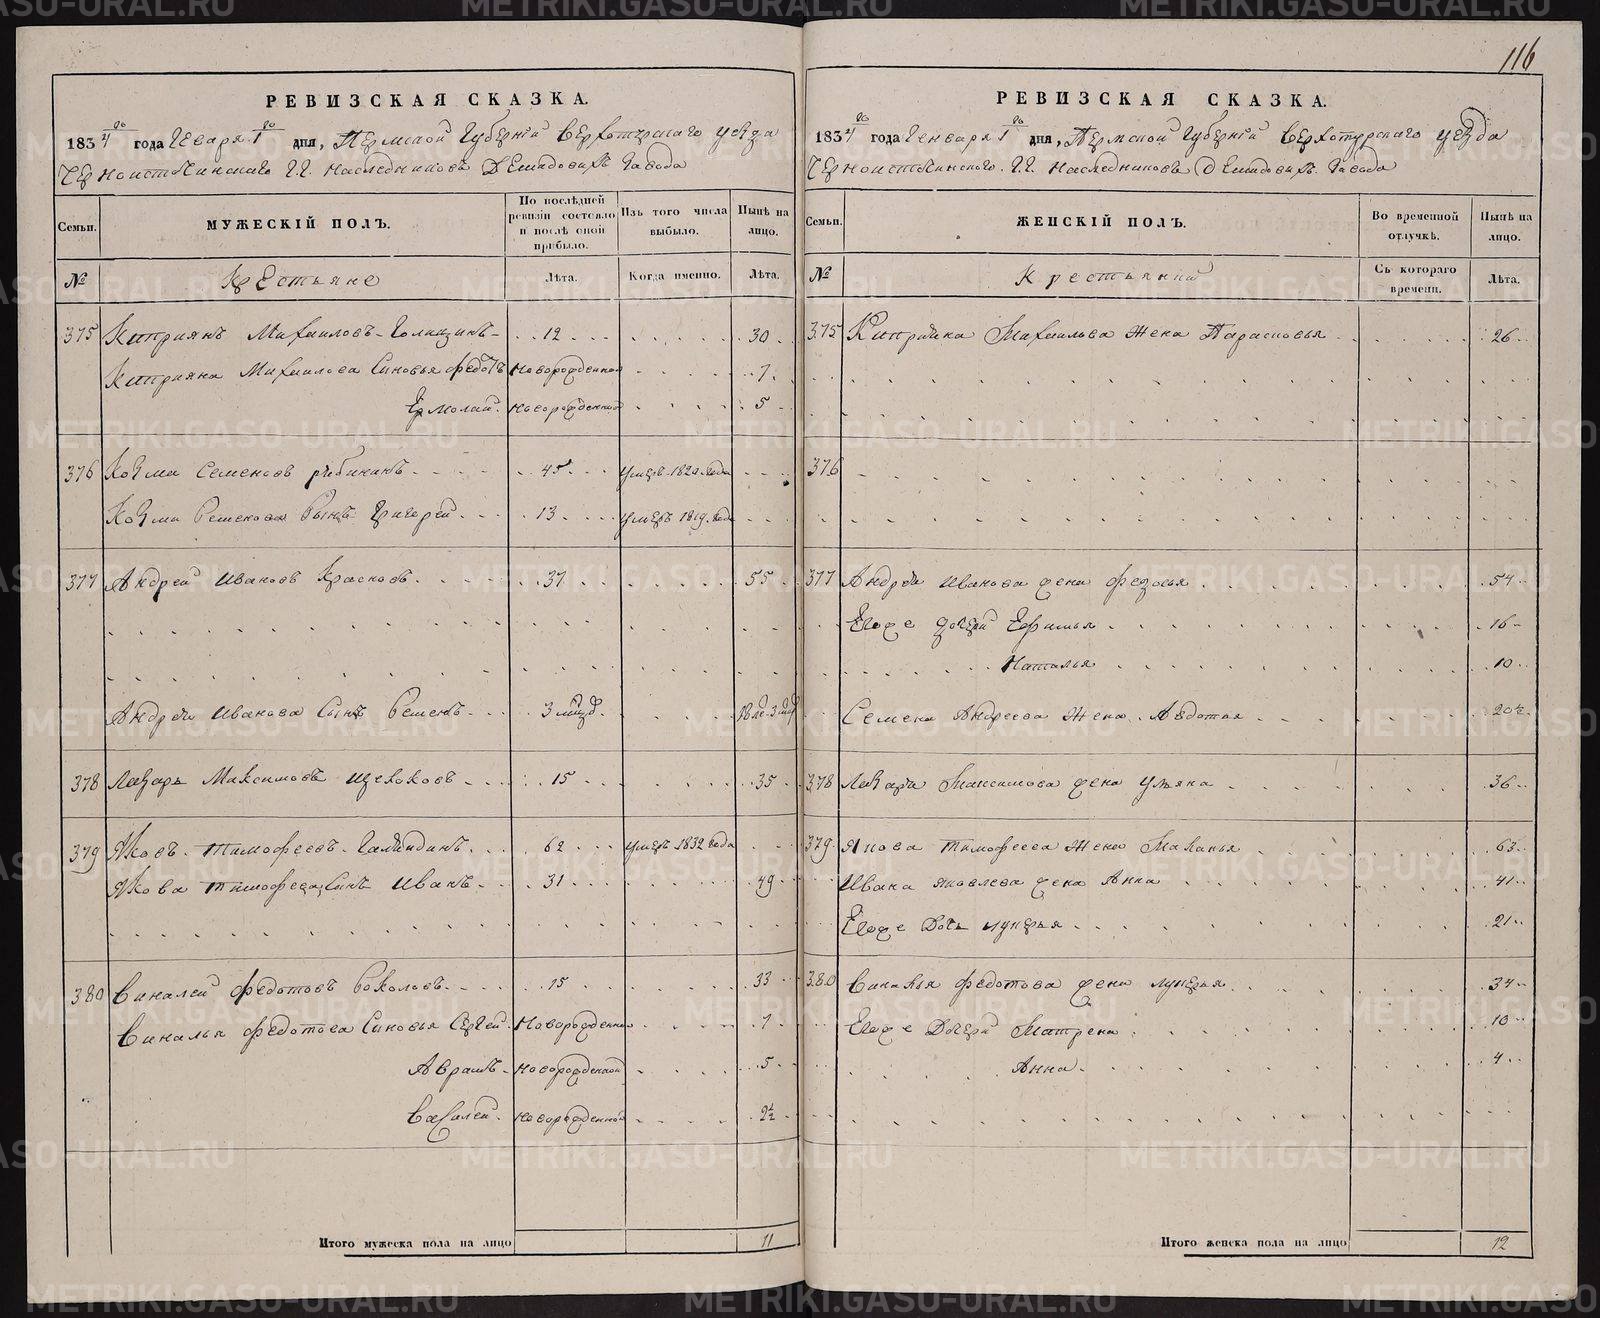 116
РЕВИЗСКАЯ СКАЗКА.
1834го года Генваря 1го дня, Пермской Губернiи Верхотурскаго уезда
Черноисточинскаго Г.Г. Наследниковъ Демидовыхъ Завода
Семьи.
МУЖЕСКIЙ ПОЛЪ.
По послѣдней ревизiи состояло и послѣ оной прибыло.
Изъ того числа выбыло.
Нынѣ на лицо.
№
Крестьяне
Лѣта.
Когда именно.
Лѣта.
375 Киприянъ Михаиловъ Голицинъ 12 30
Киприяна Михаилова Сыновья Федотъ Новорожденной 7
Ермолай Новорожденной 5
376 Козма Семеновъ Рябининъ 45 умеръ 1829 года
Козмы Семенова Сынъ Григорей 13 умеръ 1819 года
377 Андрей Ивановъ Красновъ 37 55
Андрея Иванова Сынъ Семенъ 3 мцов
378 Лазарь Максимовъ Щекоковъ 15 35
379 Яковъ Тимофеевъ 62 умеръ 1832 года
Якова Тимофеева Сынъ Иванъ 31 49
380 Виналей Федотовъ Соколовъ 15 33
Виналья Федотова Сыновья Сергей Новорожденной 7
Аврамъ Новорожденной 5
Василей Новорожденной 2½
Итого мужеска пола на лицо 11
РЕВИЗСКАЯ СКАЗКА.
1834го года Генваря 1го дня, Пермской Губернiй Верхотурскаго уезда
Черноисточинскаго Г.Г. Наследниковъ Демидовыхъ Завода
Семьи.
ЖЕНСКIЙ ПОЛЪ.
Во временной отлучкѣ.
Нынѣ на лицо.
№
Крестьянки
Съ котораго времени.
Лѣта.
375 Киприяна Михаилова Жена Парасковья 26
376
377 Андрея Иванова жена Федосья 54
Егоже дочери Ефимья 16
Наталья 10
Семена Андреева Жена Авдотья 20½
378 Лазаря Максимова жена Ульяна 36
379 Якова Тимофеева Жена Маланья 63
Ивана Яковлева жена Анна 41
Егоже Дочь Лукерья 21
380 Виналья Федотова жена Лукерья 34
Егоже Дочери Матрена 10
Анна 4
Итого женска пола на лицо 12
METRIKI.GASO-URAL.RU